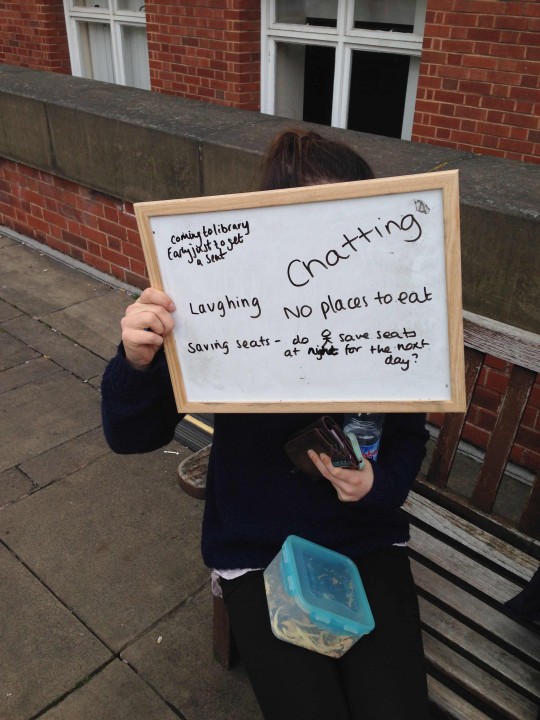 coming to library
Early just to get
a seat
Chatting
Laughing
No places to eat
saving seats - do save seats
at night for the next
day?